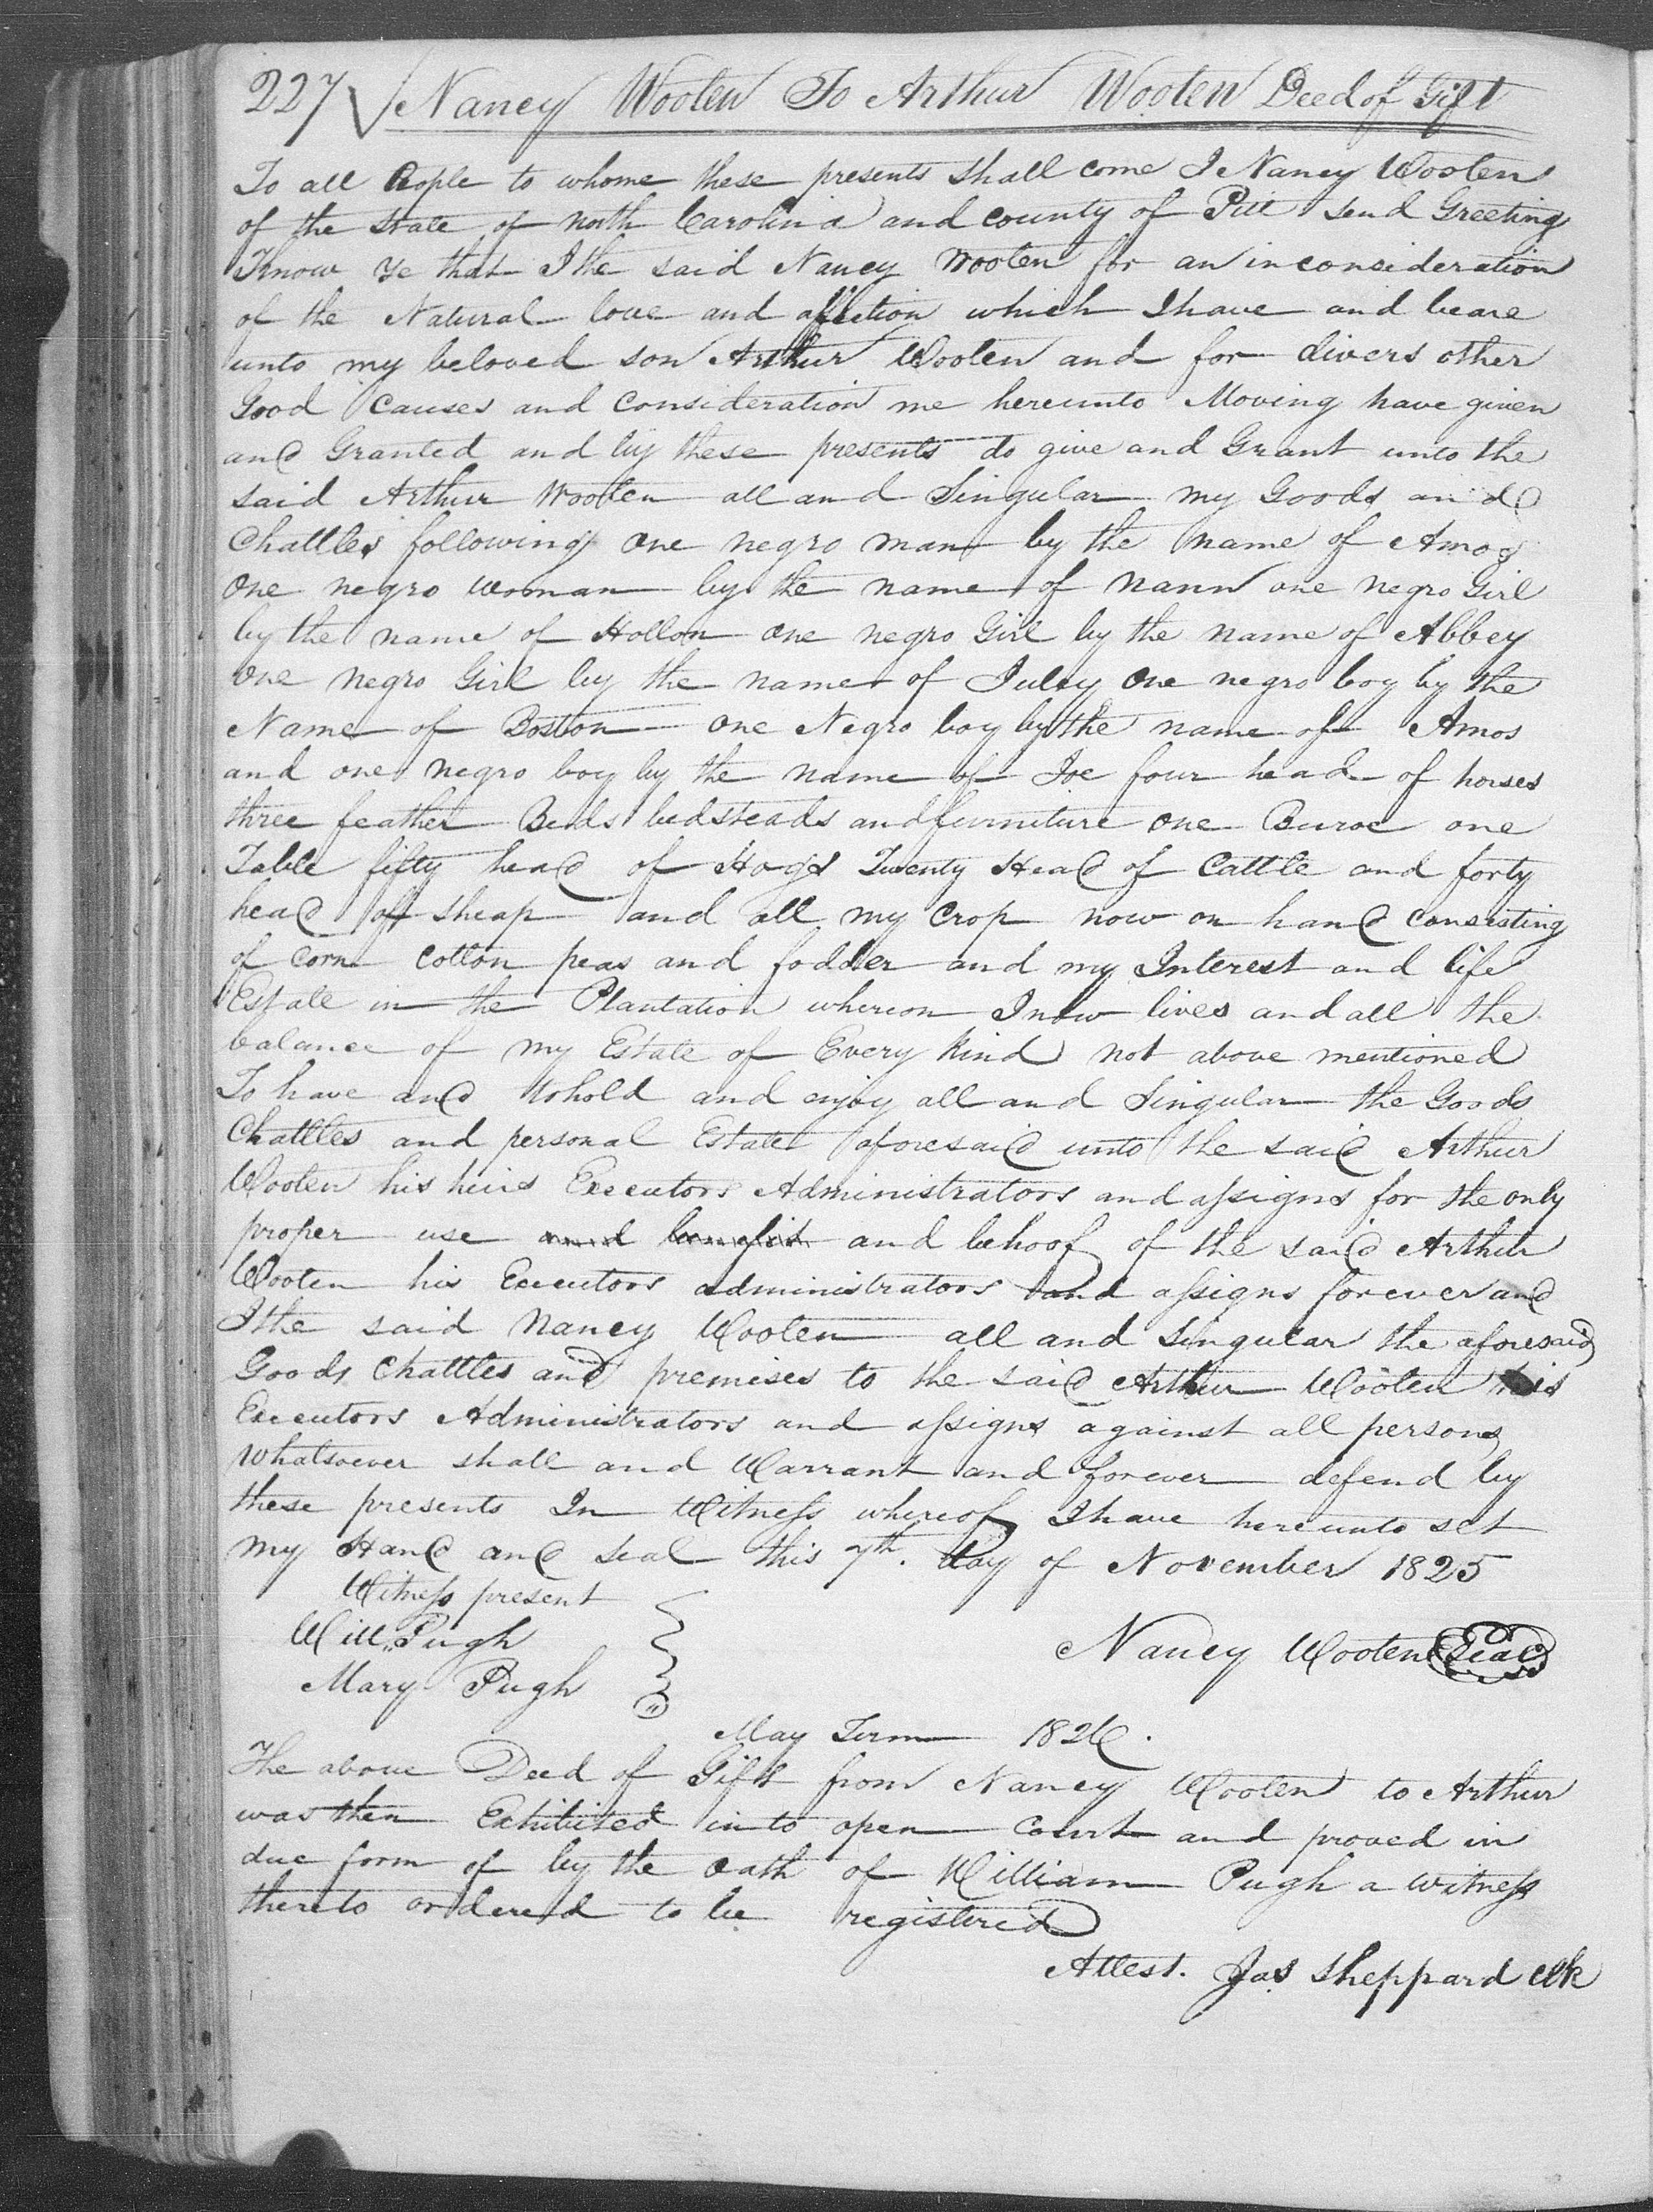 227 Nancy Wooten To Arthur Wooten Deed of Gift
To all People to whome these presents shall come I Nancy Wooten
of the State of North Carolina and county of Pitt send Greeting
Know Ye that I the said Nancy Wooten for an in consideration
of the Natural love and affection which I have and beare
unto my beloved son Arthur Wooten and for divers other
Good causes and consideration me hereunto Moving have given
and Granted and by these presents do give and Grant unto the
said Arthur Wooten all and Singular my Goods and
Chattles following one negro man by the name of Amos
one negro woman by the name of Nann one negro Girl
by the name of Hollon one negro Girl by the name of Abbey
one negro Girl by the name of Juley one negro boy by the
Name of Boston one Negro boy by the name of Amos
and one negro boy by the name of Joe four head of horses
three feather Beds bedsteads and furniture one Buroe one
Table fifty head of Hogs Twenty Head of Cattle and forty
head of sheap and all my crop now on hand consisting
of corn cotton peas and fodder and my Interest and life
Estate in the Plantation whereon I now lives and all the
balance of my Estate of Every kind not above mentioned
To have and to hold and enjoy all and Singular the Goods
Chattles and personal Estate aforesaid unto the said Arthur
Wooten his heirs Executors Administrators and assigns for the only
proper use and benefit and behoof of the said Arthur
Wooten his Executors administrators and assigns forever and
I the said Nancy Wooten all and Singular the aforesaid
Goods Chattles and premises to the said Arthur Wooten his
Executors Administrators and assigns against all persons
whatsoever shall and Warrant and forever defend by
these presents In Witness whereof I have hereunto set
my Hand and Seal this 7th. Day of November 1825
Witness present
Will. Pugh
Mary Pugh
Nancy Wooten Seal
May Term 1826.
The above Deed of Gift from Nancy Wooten to Arthur
was then Exhibited into open Court and proved in
due form of by the oath of William Pugh a witness
thereto ordered to be registered
Attest. Jas Sheppard Clk